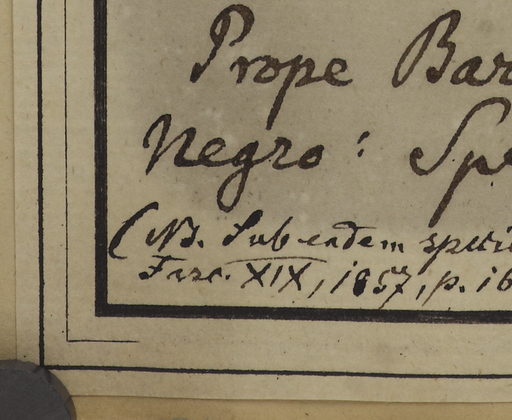 Prope Bar
Negro: Spr
(NB. Sub eadem specie
Fasc. XIX, 1857, p. 16